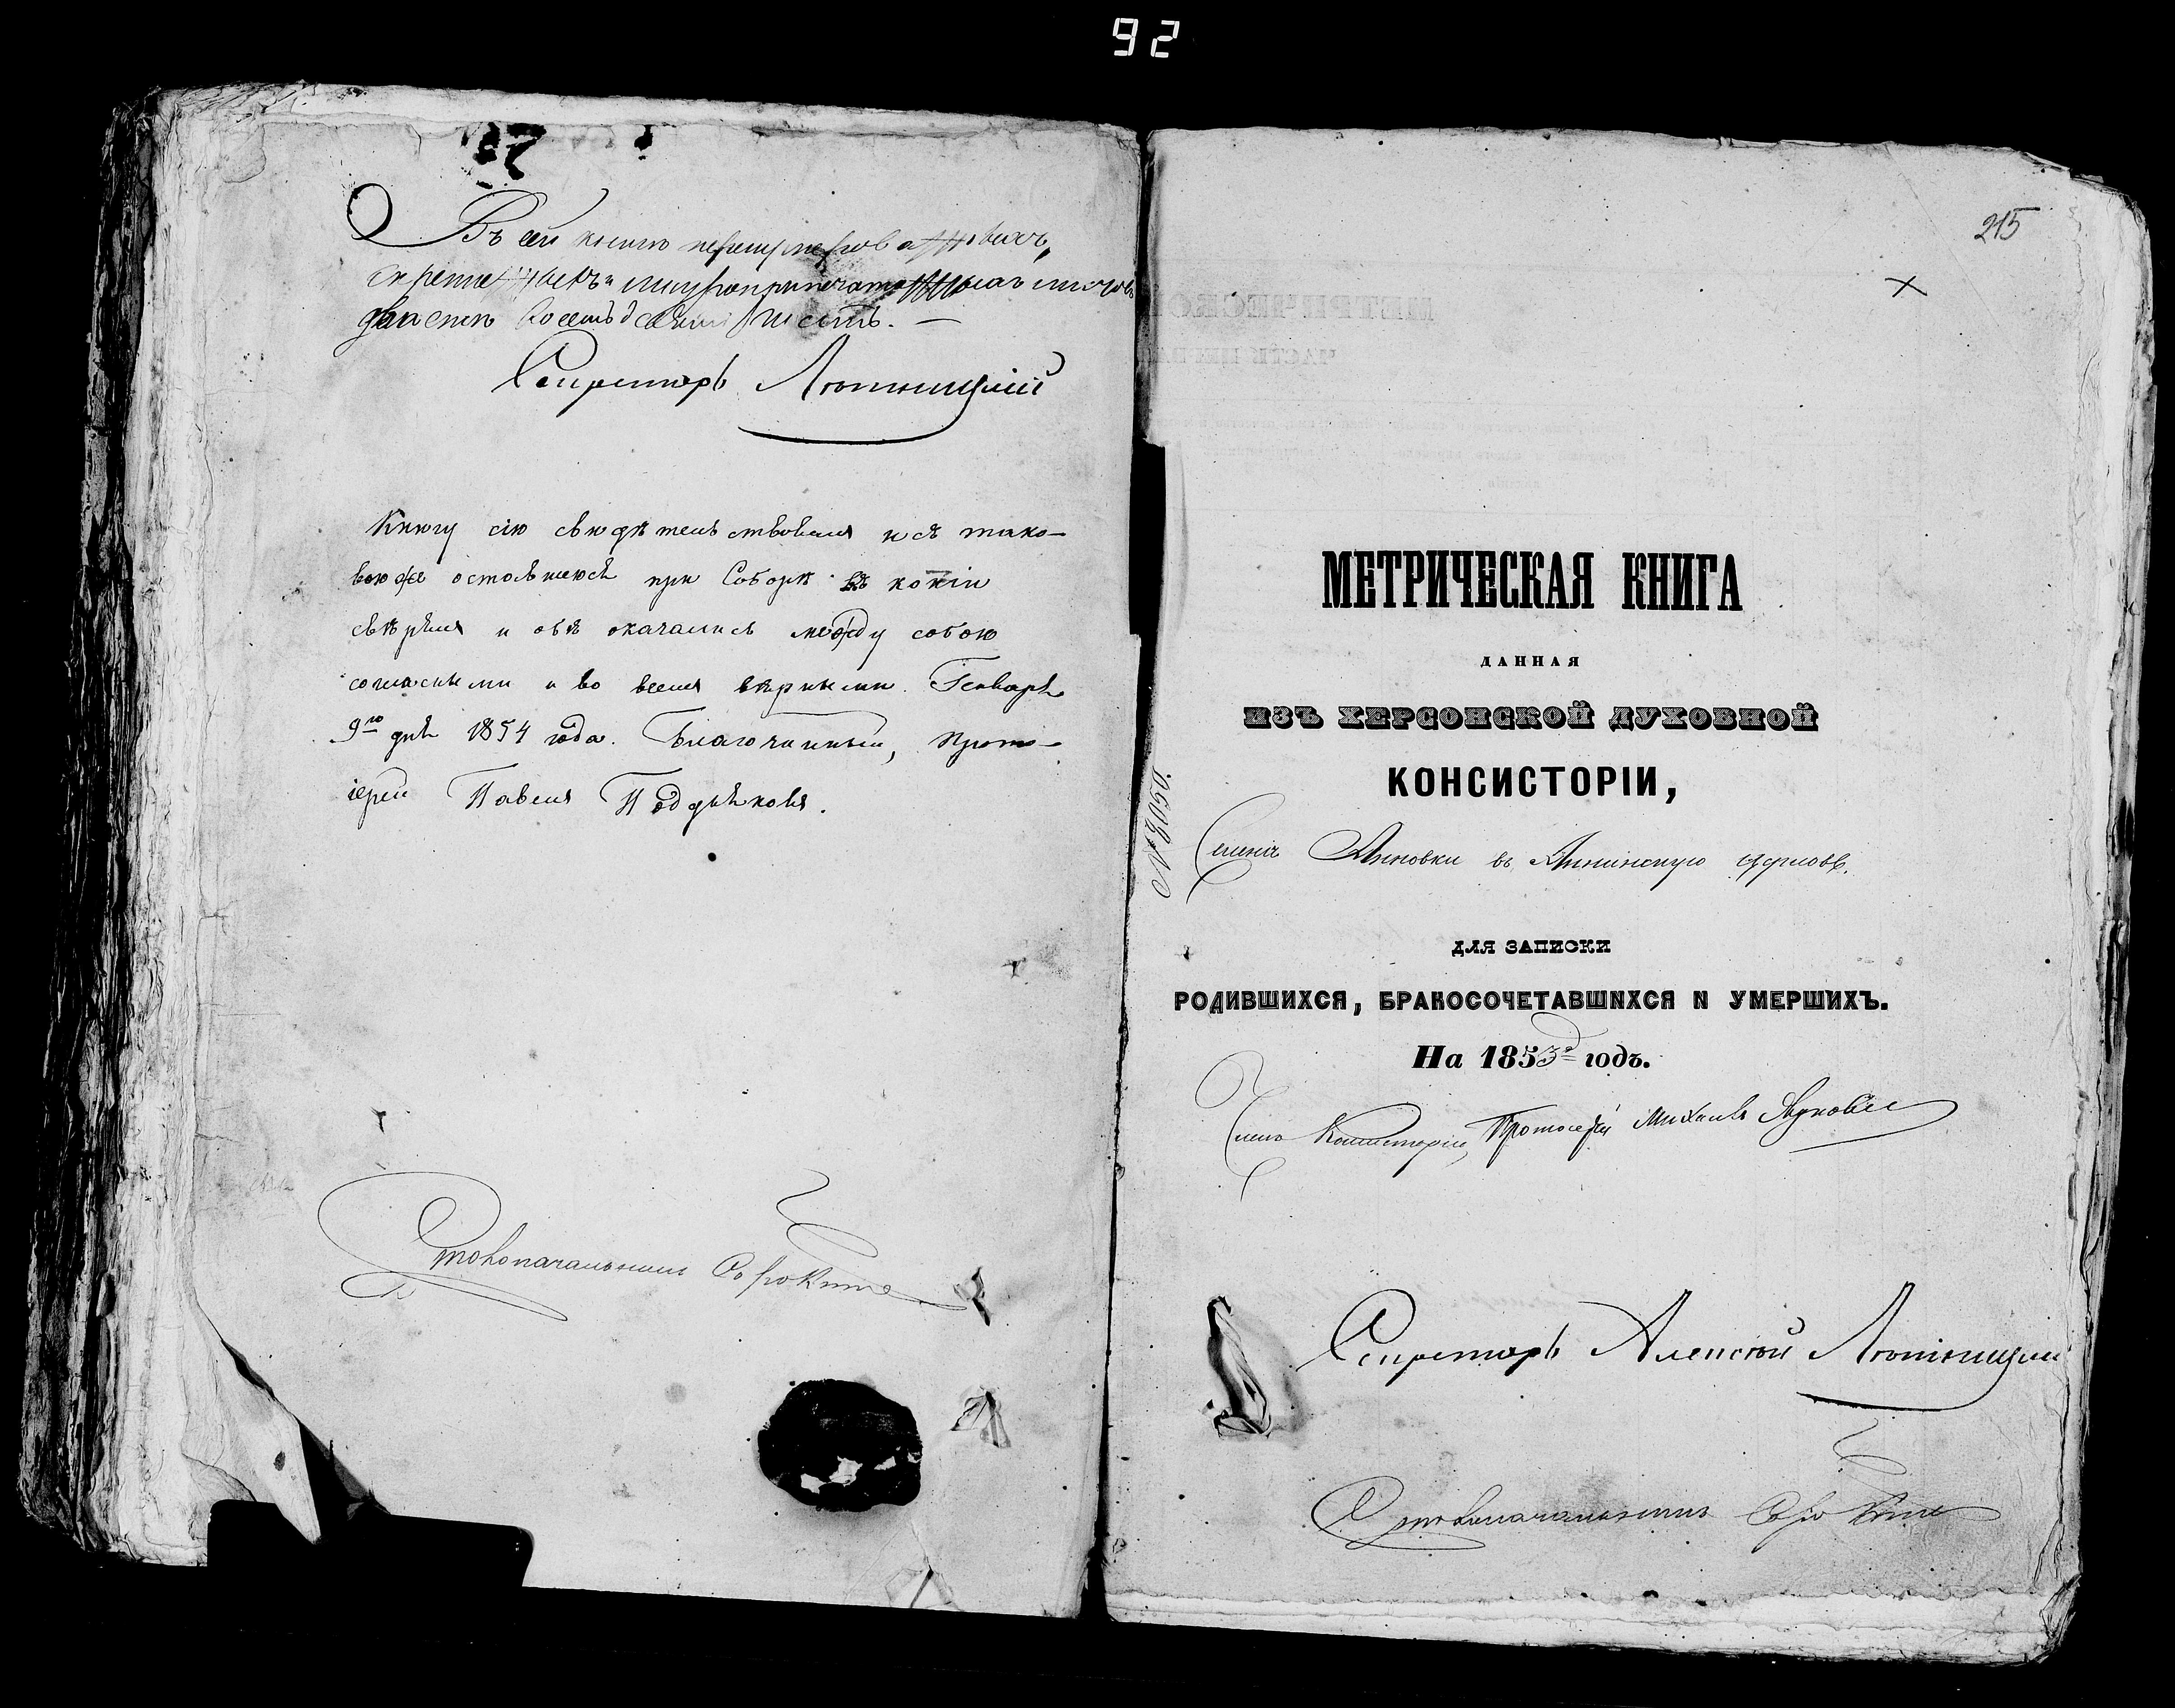 92
Въ сей книгѣ перенумерованныхъ,
скрепленныхъ и шнуроприпечатанныхъ листовъ
двѣсти восемьдесятъ шесть. —
Секретарь Лютницкій
Книгу сію свидѣтельствовалъ и съ тако-
вою же оставшеюся при Соборѣ въ копіи
свѣрялъ и обѣ оказались между собою
согласными и во всемъ вѣрными. Генваря
9го дня 1854 года. Благочинный, прото-
іерей Павелъ
Столоначальникъ
215
МЕТРИЧЕСКАЯ КНИГА
ДАННАЯ
ИЗЪ ХЕРСОНСКОЙ ДУХОВНОЙ
КОНСИСТОРІИ,
№ 8050.
Селенія Анновки въ Аннинскую церковь.
ДЛЯ ЗАПИСКИ
РОДИВШИХСЯ, БРАКОСОЧЕТАВШИХСЯ И УМЕРШИХЪ.
На 1853й годъ.
Членъ Консисторіи, Протоіерей Михаилъ
Секретарь Алексѣй Лютницкій
Столоначальникъ